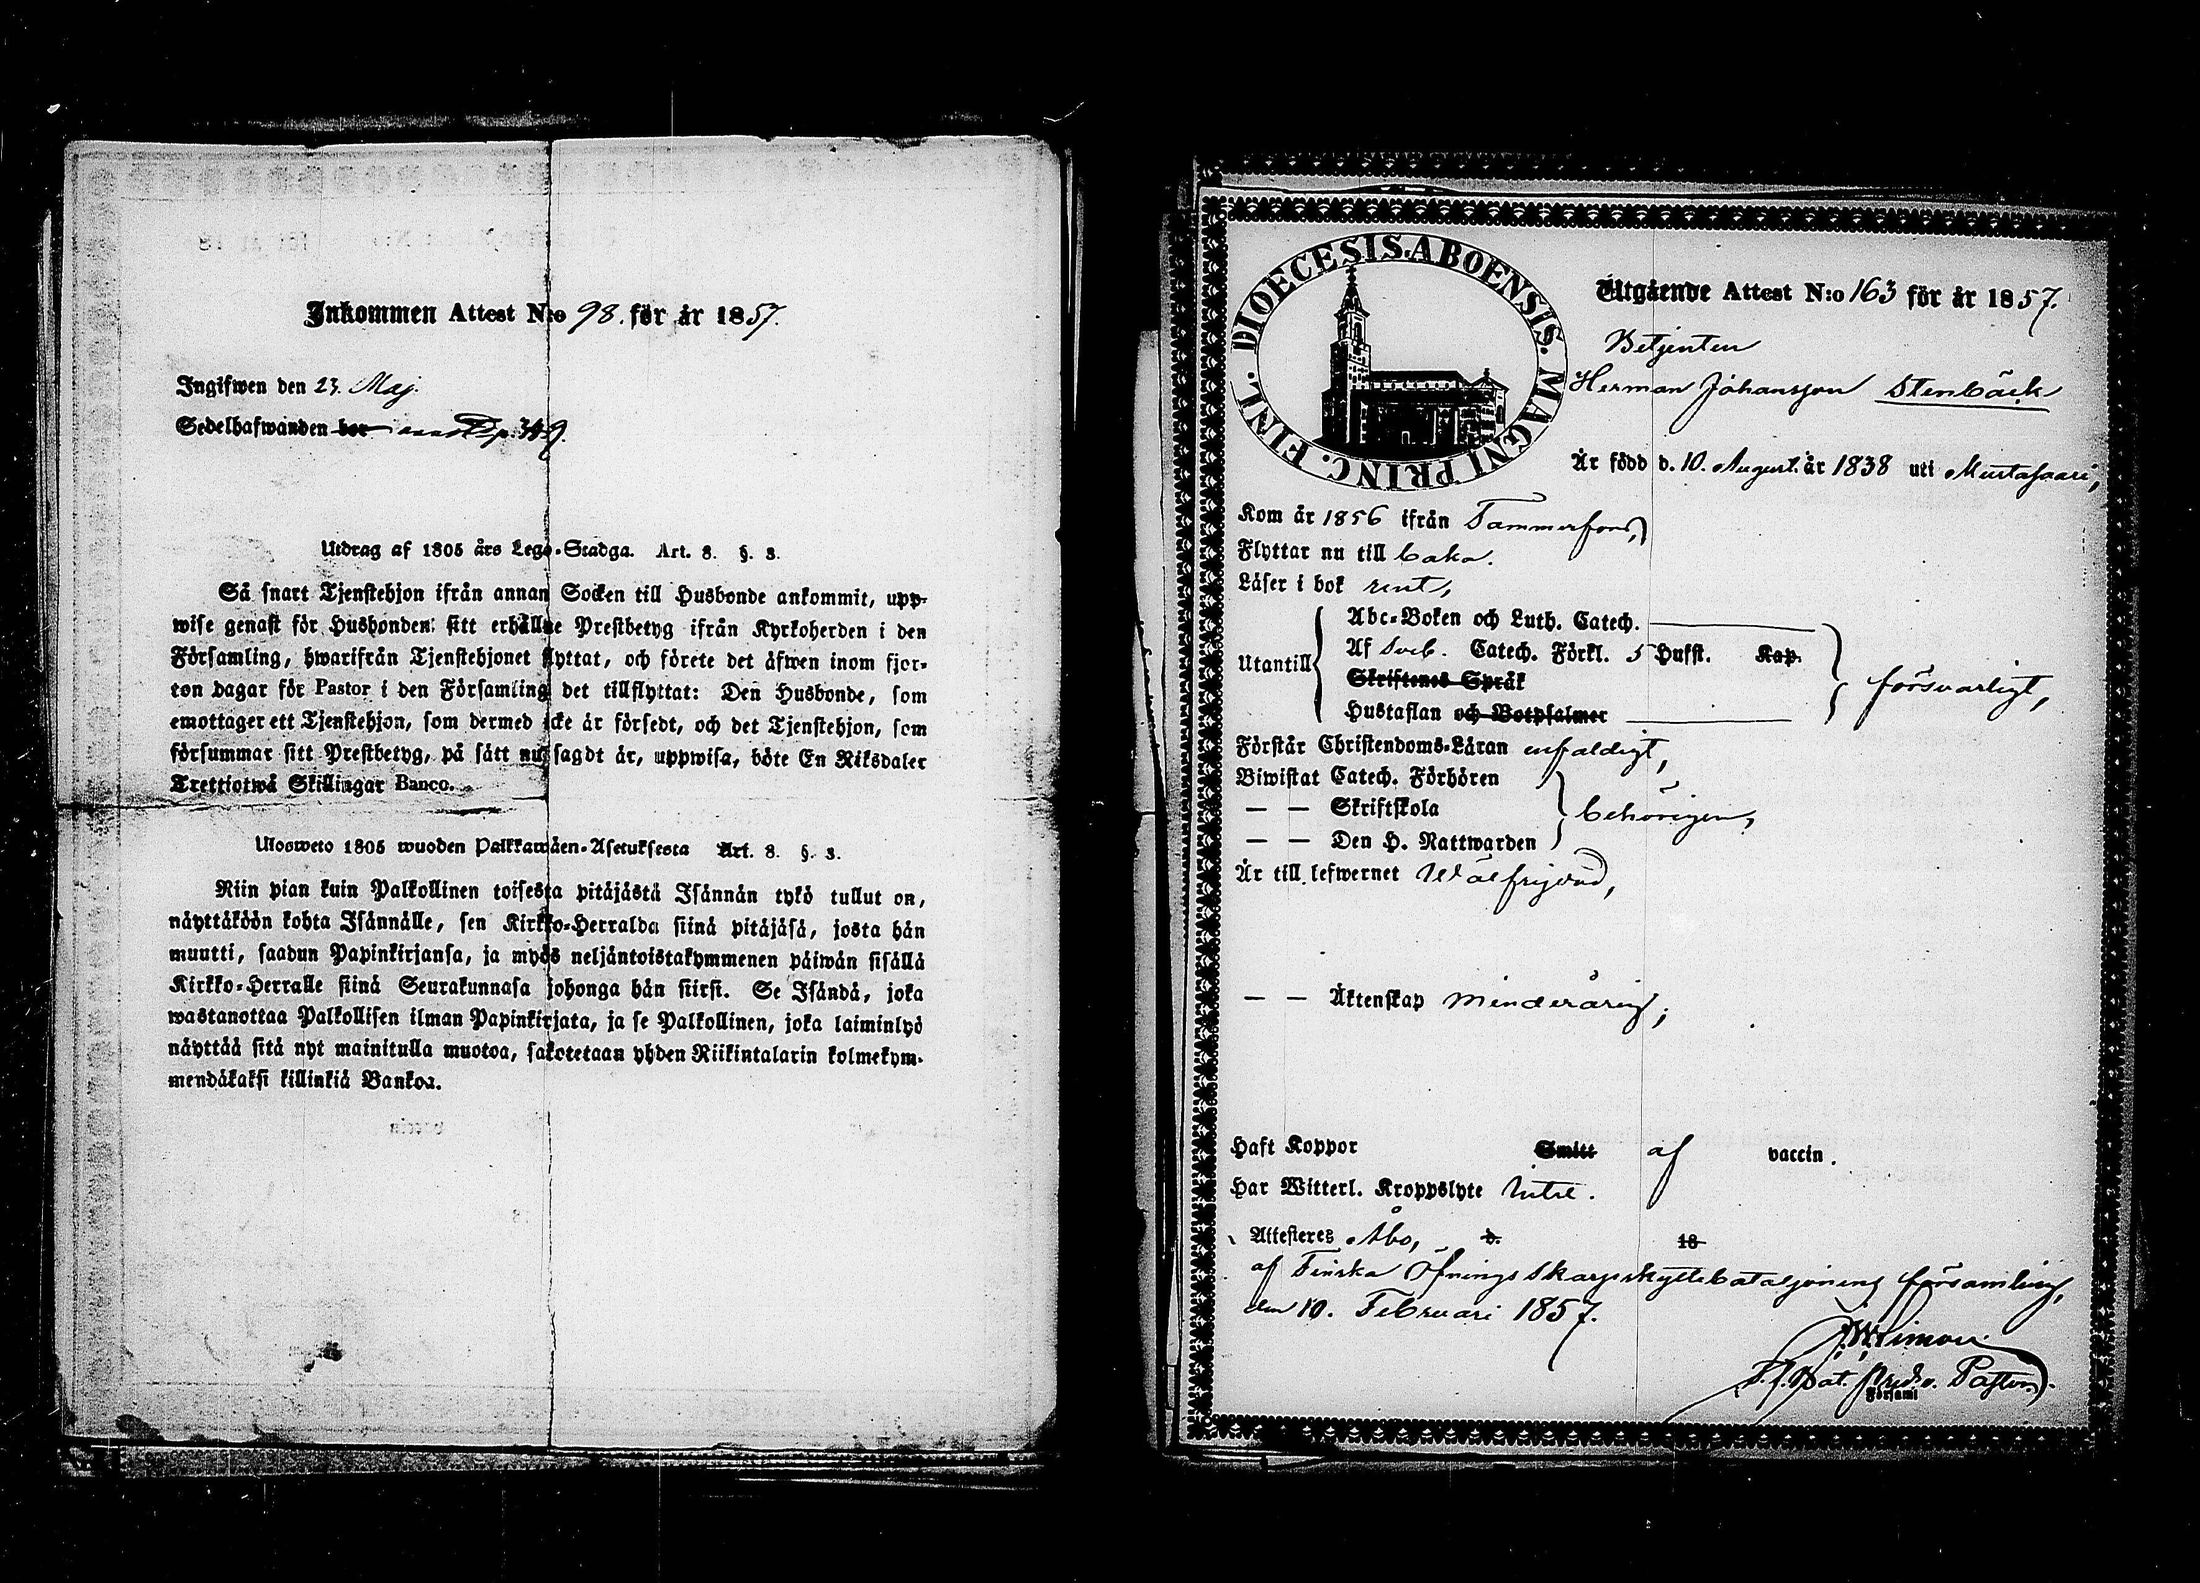 Inkommen Attest N:o 98. för år 1857.
Ingifwen den 23. Maj.
Sedelhafwanden bor
Utdrag af 1805 års Lego-Stadga. Art. 8. §. 3.
Så snart Tjenstehjon ifrån annan Socken till Husbonde ankommit, upp-
wise genast för Husbonden sitt erhållne Prestbetyg ifrån Kyrkoherden i den
Församling, hwarifrån Tjenstehjonet flyttat, och förete det äfwen inom fjor-
ton dagar för Pastor i den Församling det tillflyttat: Den Husbonde, som
emottager ett Tjenstehjon, som dermed icke är försedt, och det Tjenstehjon, som
försummar sitt Prestbetyg, på sätt nu sagdt är, uppwisa, böte En Riksdaler
Trettiotwå Skillingar Banco.
Ulosweto 1805 wuoden Palkkawäen-Asetuksesta Art. 8. §. 3.
Niin pian kuin Palkollinen toisesta pitäjästä Isännän tykö tullut on,
näyttäköön kohta Isännälle, sen Kirkko-Herralda siinä pitäjäsä, josta hän
muutti, saadun Papinkirjansa, ja myös neljäntoistakymmenen päiwän sisällä
Kirkko-Herralle siinä Seurakunnasa johonga hän siirsi. Se Isändä, joka
wastanottaa Palkollisen ilman Papinkirjata, ja se Palkollinen, joka laiminlyö
näyttää sitä nyt mainitulla muotoa, sakotetaan yhden Riikintalarin kolmekym-
mendäkaksi killinkiä Bankoa.
DIOECESIS. ABOENSIS. MAGNI PRINC. FINL.
Utgående Attest N:o 163 för år 1857.
Betjenten
Herman Johansson Stenbäck
Är född d. 10. August. år 1838 uti Mustasaari,
Kom år 1856 ifrån Tammerfors,
Flyttar nu till
Läser i bok rent,
Utantill
Abc-Boken och Luth. Catech.
Af Sveb. Catech. Förkl. 5 Hufst. Kap.
Skriftenes Språk
Hustaflan och Botpsalmer
försvarligt,
Förstår Christendoms-Läran enfaldigt,
Biwistat Catech. Förhören
— — Skriftskola
— — Den H. Nattwarden
behörigen,
Är till lefwernet Wälfrejdad,
— — Äktenskap minderårig;
Haft Koppor Smitt af vaccin.
Har Witterl. Kroppslyte intet.
Attesteres Åbo, d. 18
af Finska Öfnings Skarpskyttebataljonens församling,
den 10. Februari 1857.
Församl